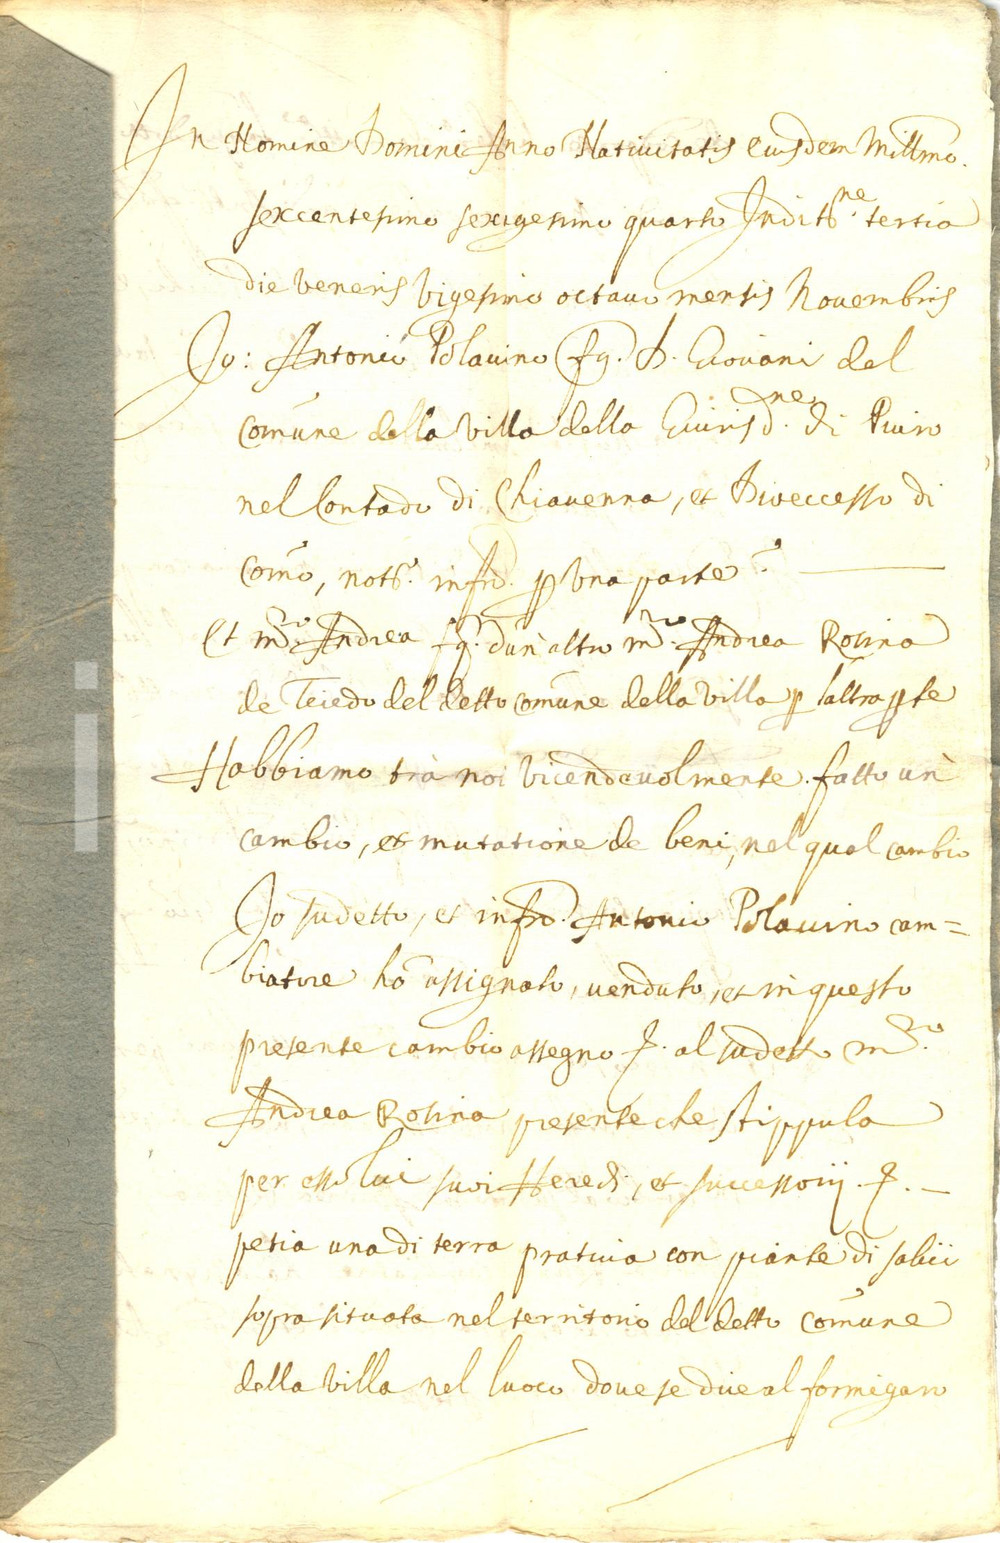 In Nomine Domini Anno Nativitatis eiusdem Millmo.
sexcentesimo sexigesimo quarto Indit.ne tertia
die Veneris vigesimo octavo mensis Novembris
Io: Antonio Polavino fq. D. Giovani del
comune della Villa della Giurisd.ne di Piuro
nel Contado di Chiavenna, et Diveccesso di
Como, nots. infrô. p Una parte
Et m.ro Andrea fq. d'un altro m.ro Andrea Rosina
de Teiedo del detto comune della Villa p l'altra pte
Habbiamo trà noi vicendevolmente fatto un
cambio, et mutatione de beni, nel qual cambio
Io sudetto, et infrô. Antonio Polavino cam=
biatore hò assignato, venduto, et in questo
presente cambio assegno al sudetto m.ro
Andrea Rosina presente che stippula
per esso lui suoi Heredi, et successorij
petia una di terra prativa con piante di salici
sopra situata nel territorio del detto comune
della Villa nel luoco dove se dice al formigaro